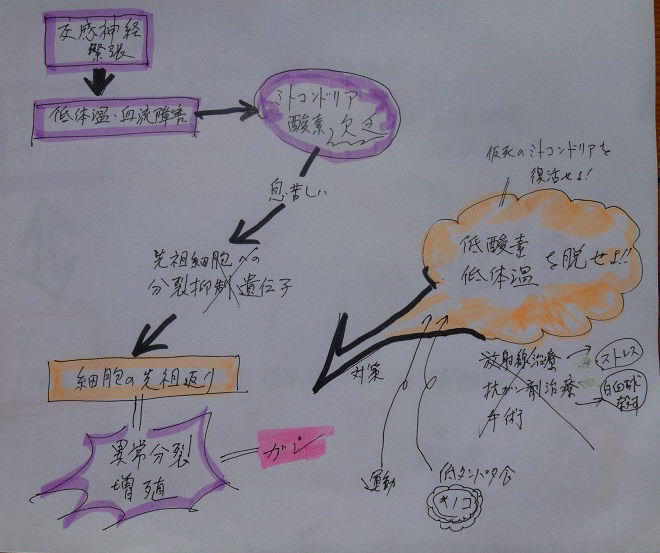 交感神経
緊張
低体温・血流障害
ミトコンドリア
酸素欠乏
息苦しい
先祖細胞への
分裂抑制遺伝子
細胞の先祖返り
異常分裂
増殖
ガン
仮死のミトコンドリアを
復活せよ!
低酸素
低体温
を脱せよ!!
対策
放射線治療
ストレス
抗ガン剤治療
白血球
手術
運動
低タンパク食
キノコ